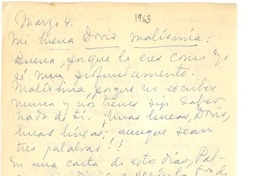 Marzo 4.
1963
Mi buena Doris malísima:
Buena, porque lo eres como yo
sé muy
Malísima, porque no escribes
nunca y nos tienes sin saber
nada de ti. Unas líneas, Doris,
unas líneas: aunque sean
tres palabras!!
En una carta de estos días, Pal-